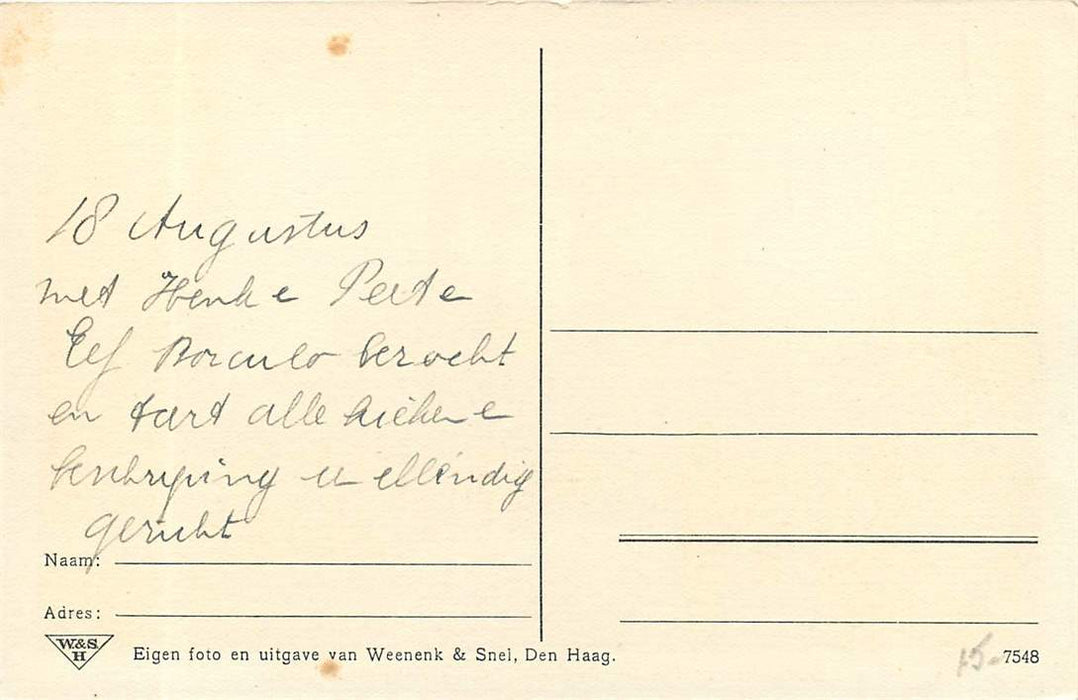 18 Augustus
met Henk e Peete
Eef Borculo bezocht
en tart alle
u ellendig
gezicht
Naam:
Adres:
W.&S.
H
Eigen foto en uitgave van Weenenk & Snel, Den Haag.
15.- 7548